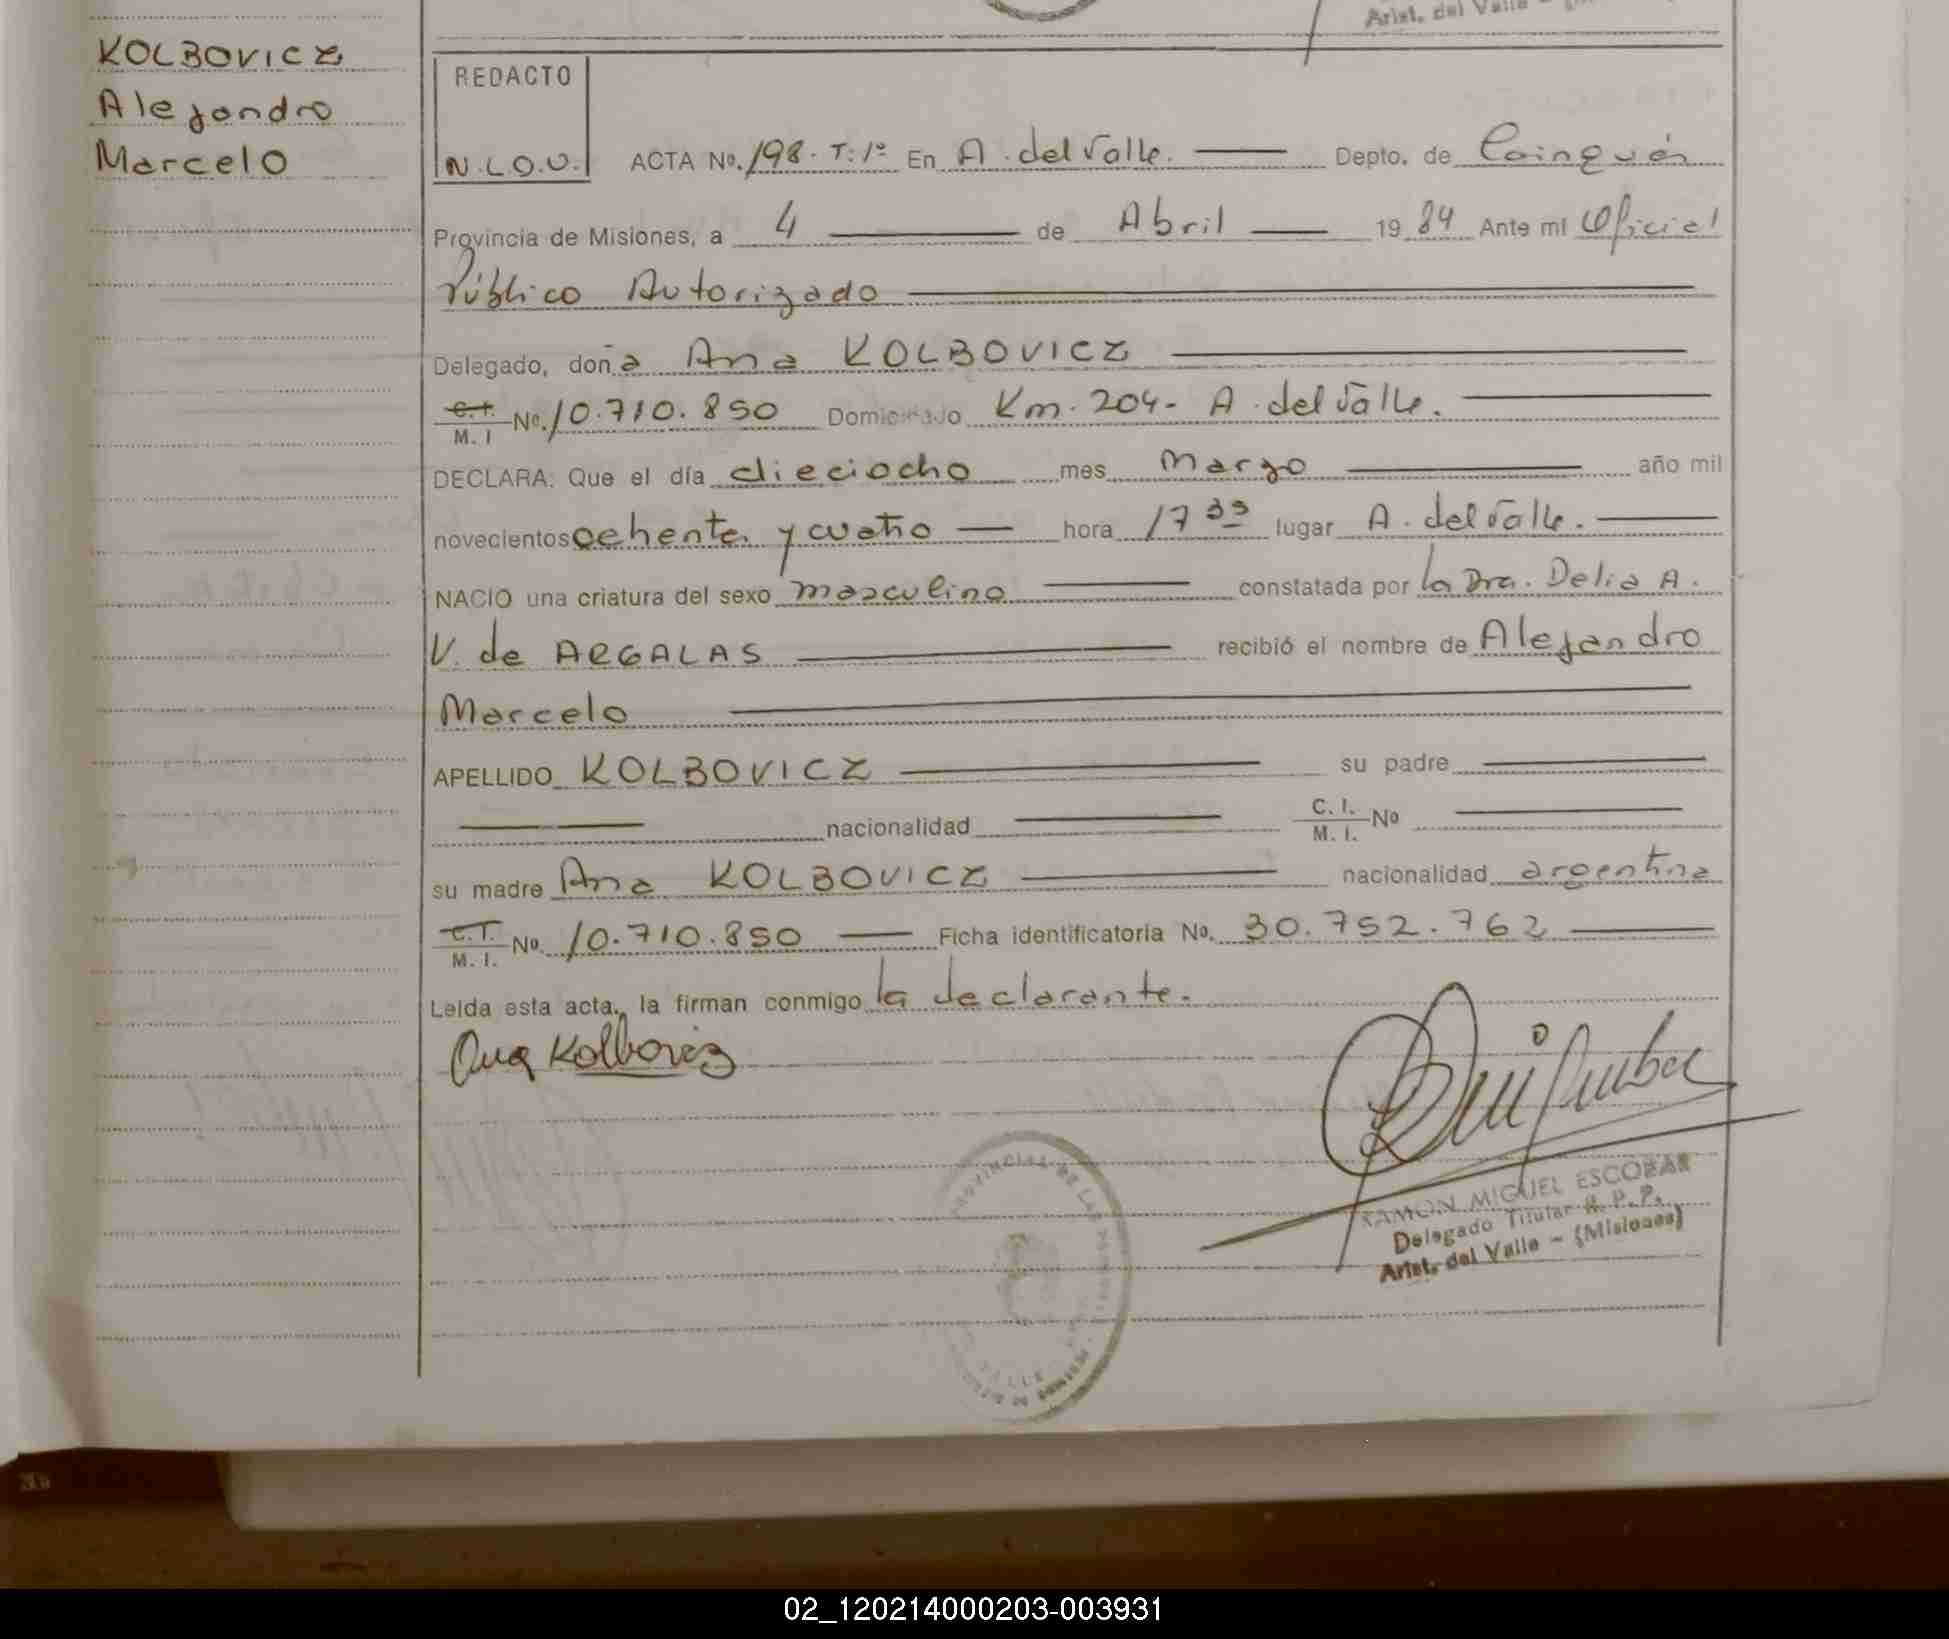 Arist. del Valle
KOLBOVICZ
Alejandro
Marcelo
REDACTO
N.L.O.U.
ACTA No. 198. T: 1º En A. del Valle. Depto. de Cainguás
Provincia de Misiones, a 4 de Abril 19 84 Ante mi Oficial
Público Autorizado
Delegado, doña Ana KOLBOVICZ
C.I. M. I No. 10.710.850 Domiciliado Km. 204- A. del Valle.
DECLARA: Que el día dieciocho mes Marzo año mil
novecientos ochenta y cuatro hora 17 35 lugar A. del Valle.
NACIO una criatura del sexo masculino constatada por la Dra. Delia A.
V. de ARGALAS recibió el nombre de Alejandro
Marcelo
APELLIDO KOLBOVICZ su padre
nacionalidad C. I. M. I. No
su madre Ana KOLBOVICZ nacionalidad argentina
C.I. M. I. No. 10.710.850 Ficha identificatoria No. 30.752.762
Leida esta acta, la firman conmigo la declarante.
Ana Kolbovicz
RAMON MIGUEL ESCOBAR
Delegado Titular R. P. P.
Arist. del Valle - (Misiones)
PROVINCIAL DE LAS
VALLE
02_120214000203-003931